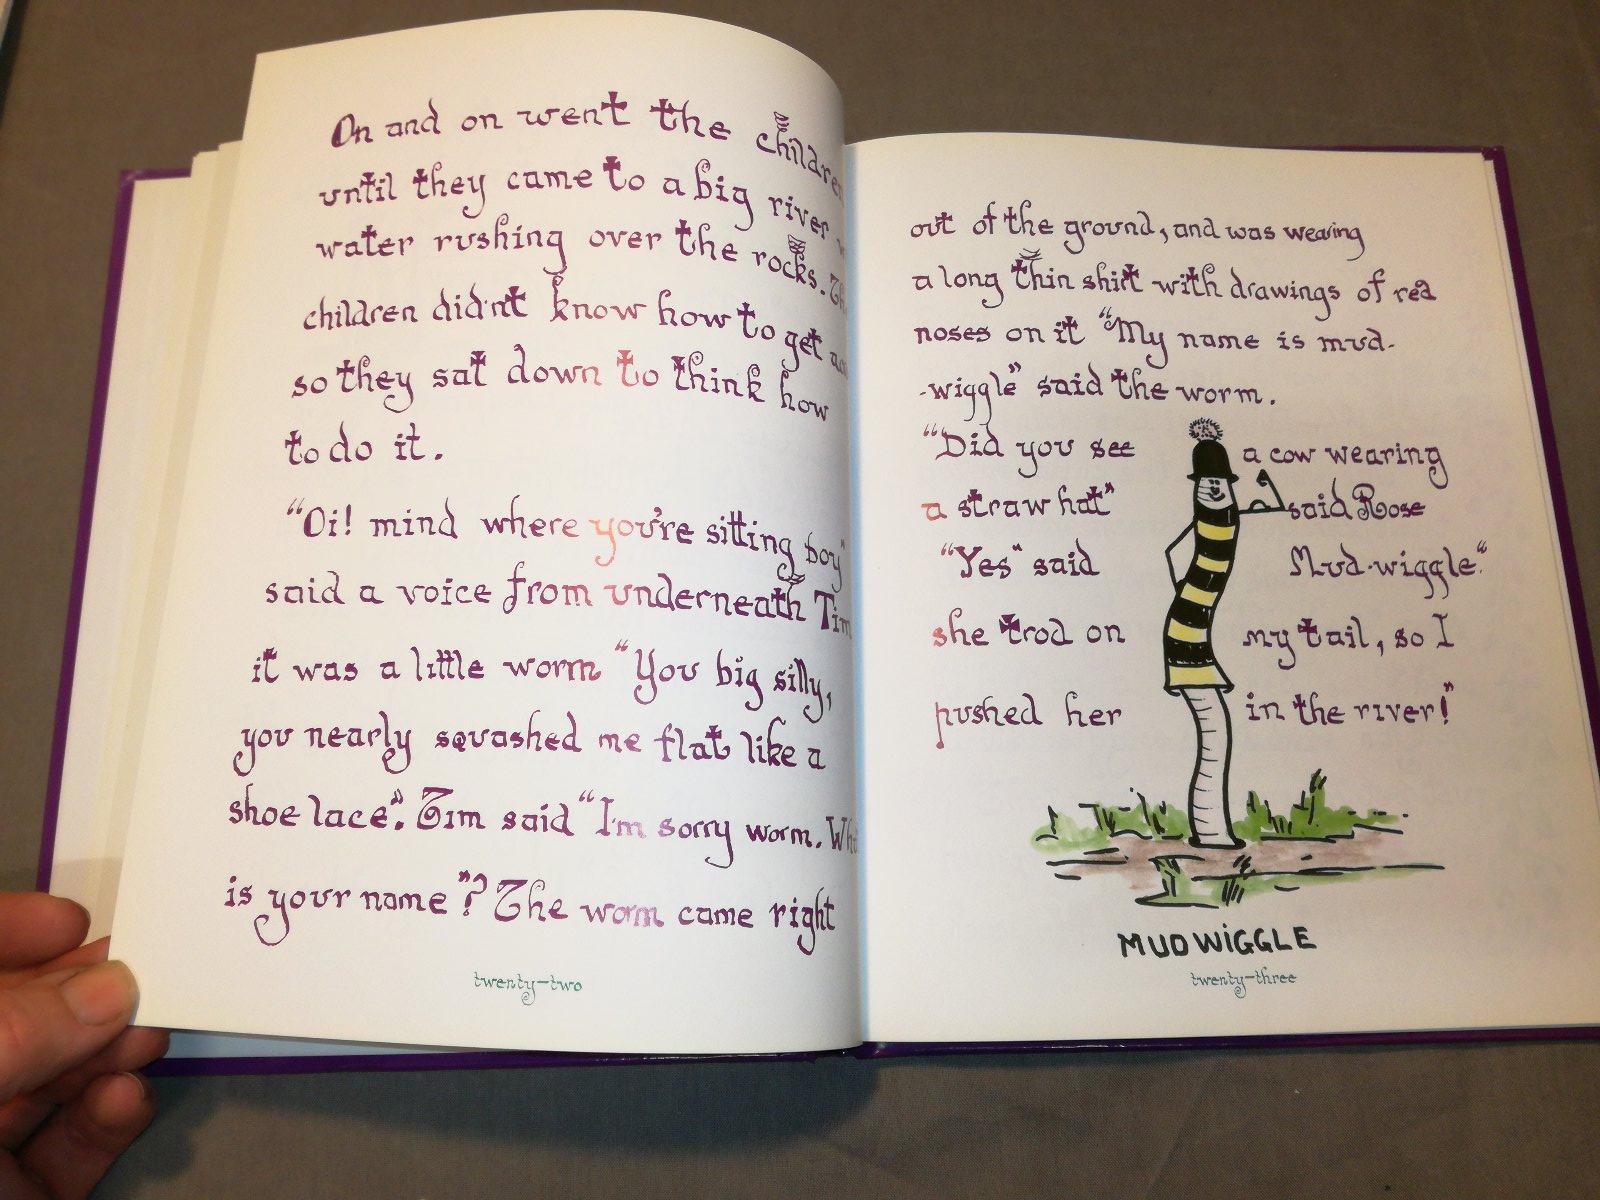 On and on went the children
until they came to a big river
water rushing over the rocks.
children didn't know how to get
so they sat down to think how
to do it.
"Oi! mind where you're sitting boy"
said a voice from underneath Tim
it was a little worm "You big silly,
you nearly squashed me flat like a
shoe lace". Tim said "I'm sorry worm.
is your name"? The worm came right
twenty-two
out of the ground, and was wearing
a long thin shirt with drawings of red
noses on it "My name is mud-
-wiggle" said the worm.
"Did you see a cow wearing
a straw hat" said Rose
"Yes" said Mud-wiggle."
she trod on my tail, so I
pushed her in the river!"
MUDWIGGLE
twenty-three